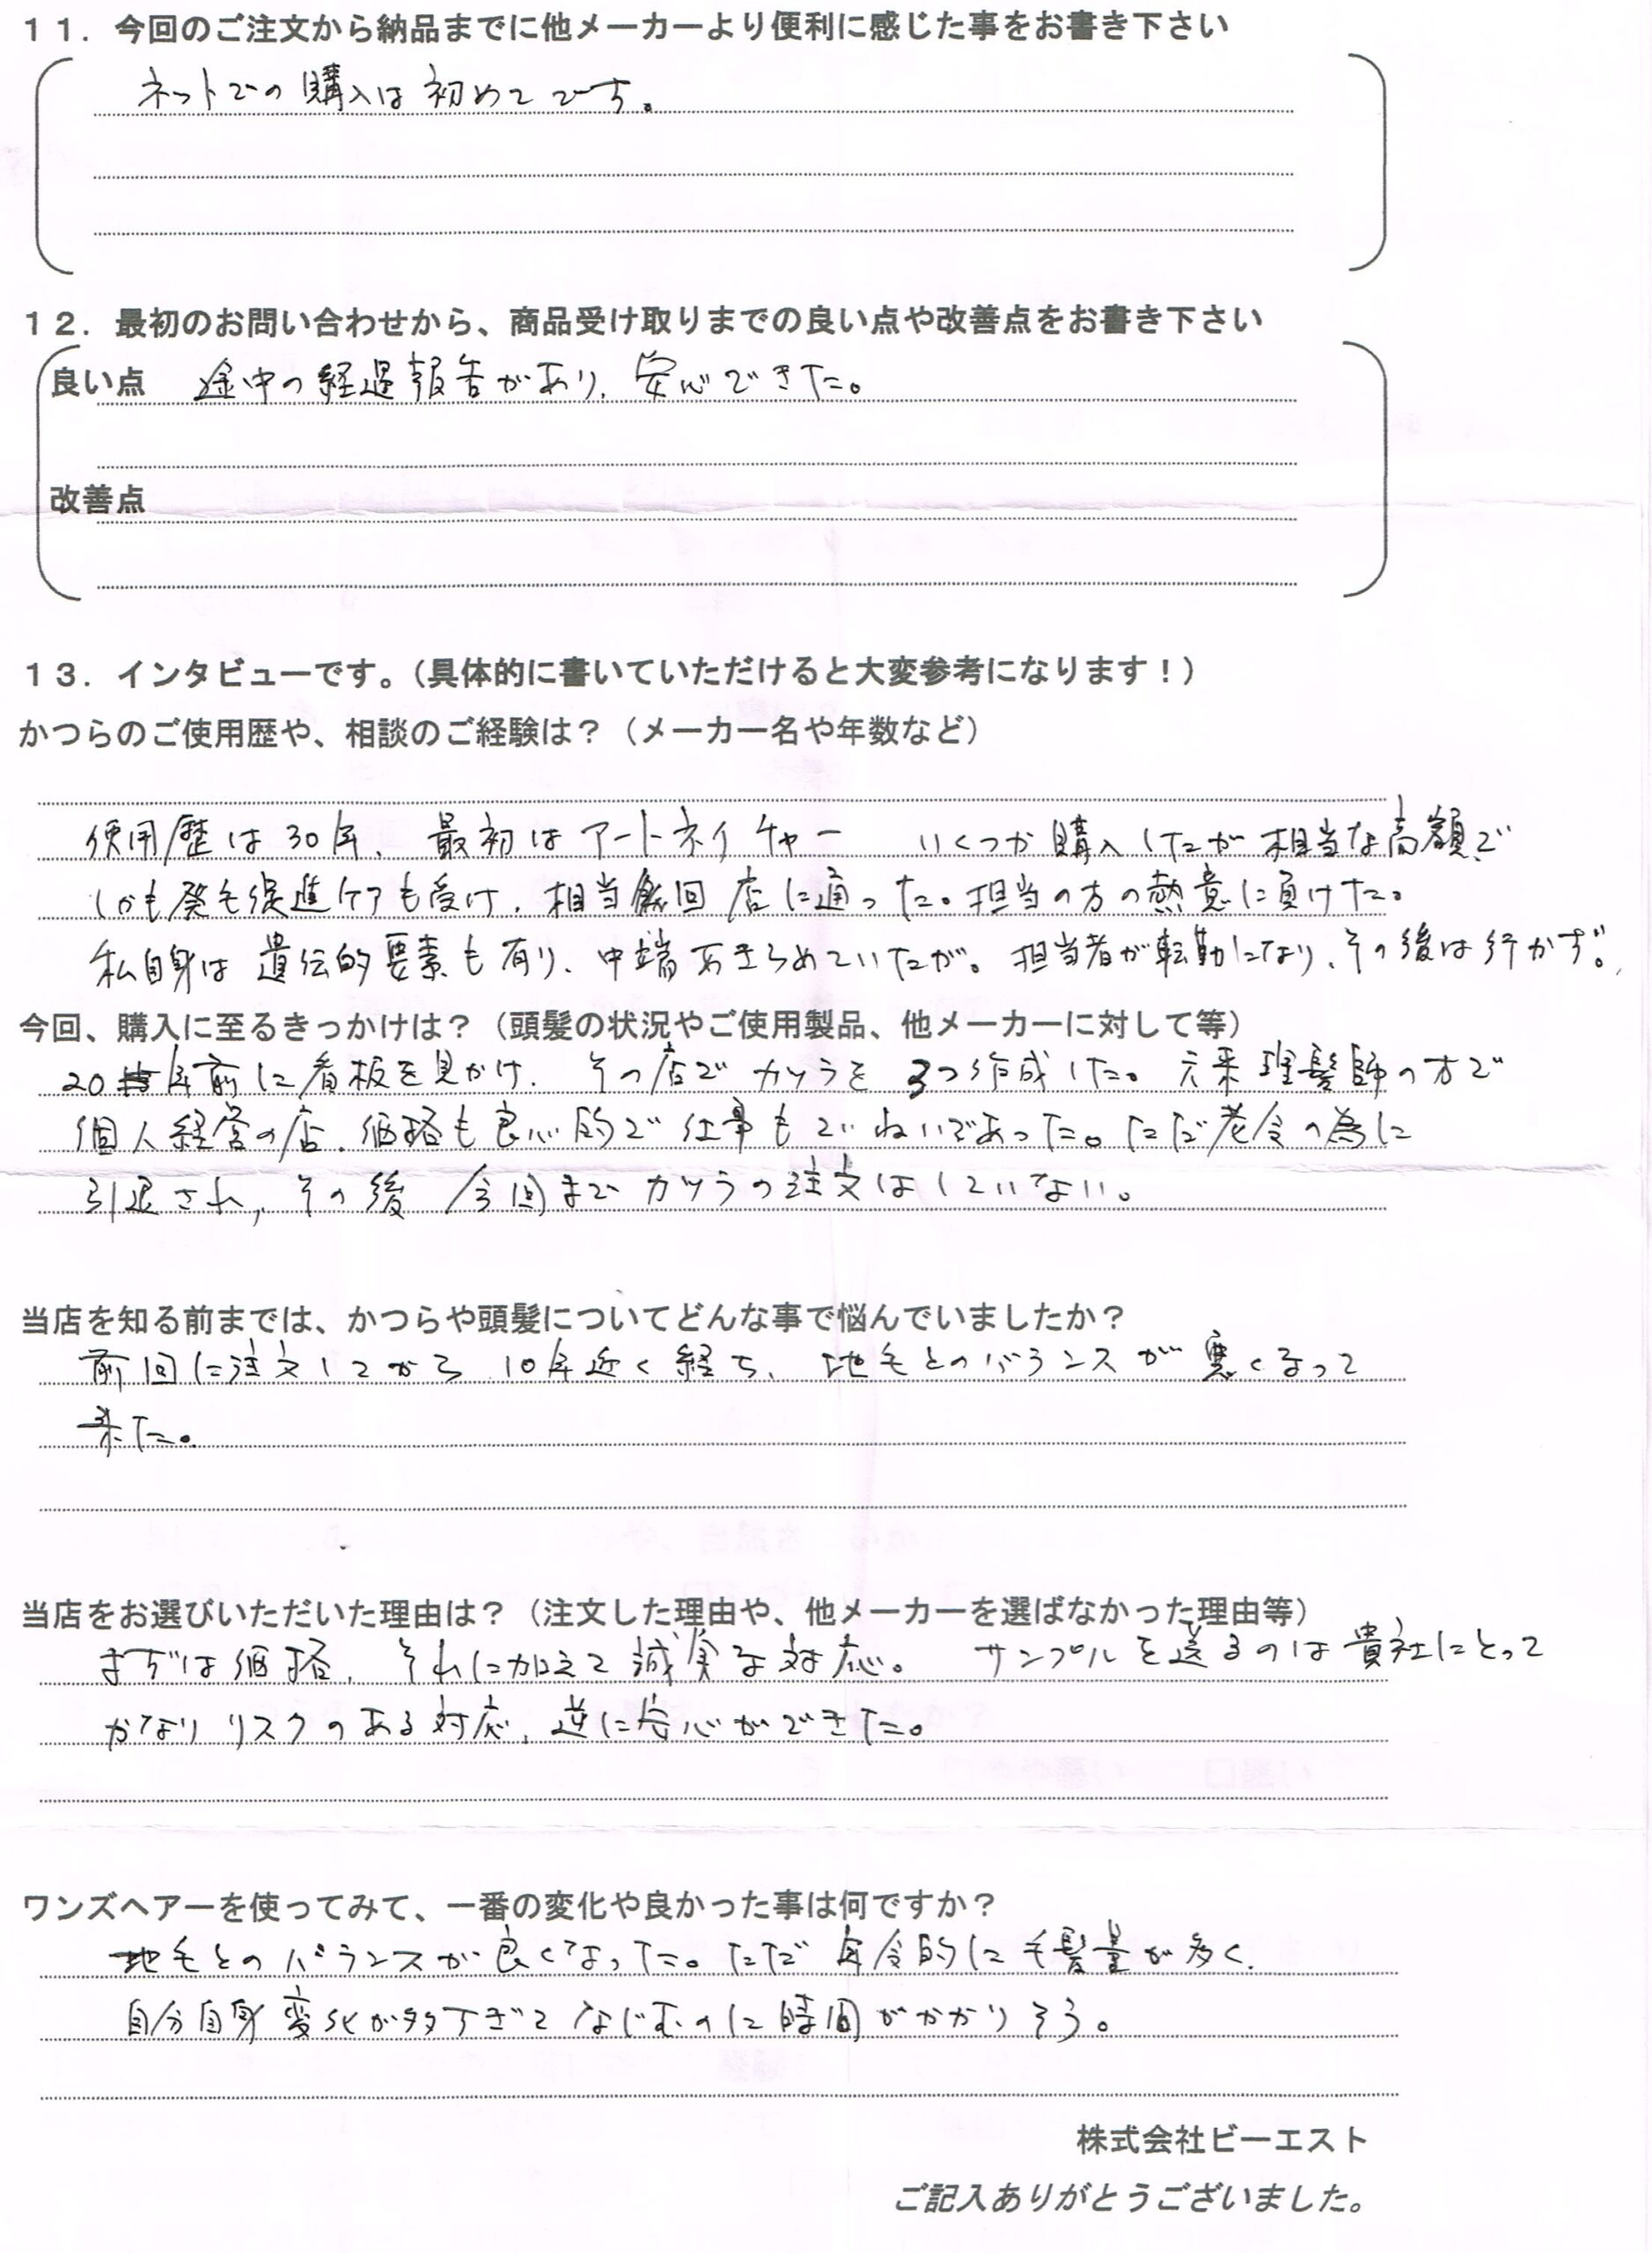 11. 今回のご注文から納品までに他メーカーより便利に感じた事をお書き下さい
ネットでの購入は初めてです。
12. 最初のお問い合わせから、商品受け取りまでの良い点や改善点をお書き下さい
良い点 途中の経過報告があり、安心できた。
改善点
13. インタビューです。(具体的に書いていただけると大変参考になります!)
かつらのご使用歴や、相談のご経験は?(メーカー名や年数など)
使用歴は30年、最初はアートネイチャー いくつか購入したが相当な高額で
しかも発毛促進ケアも受け、相当数回店に通った。担当の方の熱意に負けた。
私自身は遺伝的要素も有り、中端あきらめていたが。担当者が転勤になり、その後は行かず。
今回、購入に至るきっかけは?(頭髪の状況やご使用製品、他メーカーに対して等)
20年前に看板を見かけ、その店でカツラを3つ作成した。元来理髪師の方で
個人経営の店、価格も良心的で仕事もていねいであった。ただ老令の為に
引退され、その後今回までカツラの注文はしていない。
当店を知る前までは、かつらや頭髪についてどんな事で悩んでいましたか?
前回に注文してから10年近く経ち、地毛とのバランスが悪くなって
来た。
当店をお選びいただいた理由は?(注文した理由や、他メーカーを選ばなかった理由等)
まずは価格、それに加えて誠実な対応。 サンプルを送るのは貴社にとって
かなりリスクのある対応、逆に安心ができた。
ワンズヘアーを使ってみて、一番の変化や良かった事は何ですか?
地毛とのバランスが良くなった。ただ年令的に毛髪量が多く、
自分自身変化が多すぎてなじむのに時間がかかりそう。
株式会社ビーエスト
ご記入ありがとうございました。